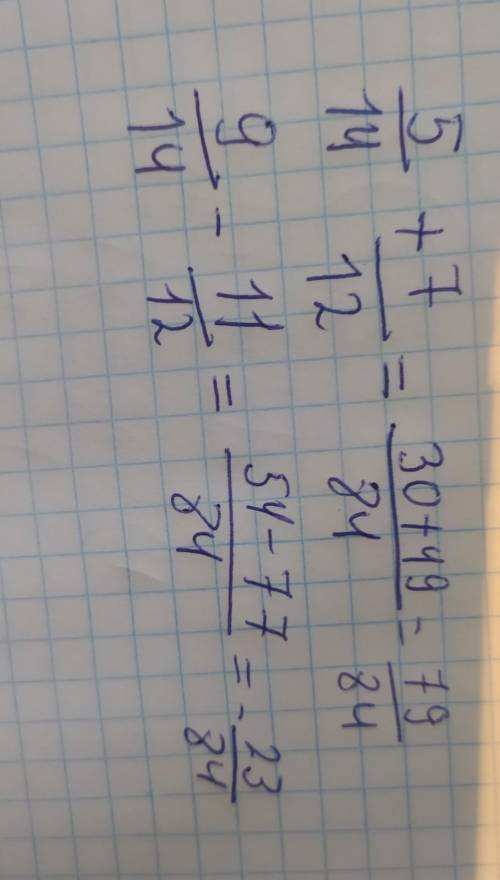 5/14 + 7/12 = (30+49)/84 = 79/84
9/14 - 11/12 = (54-77)/84 = -23/84